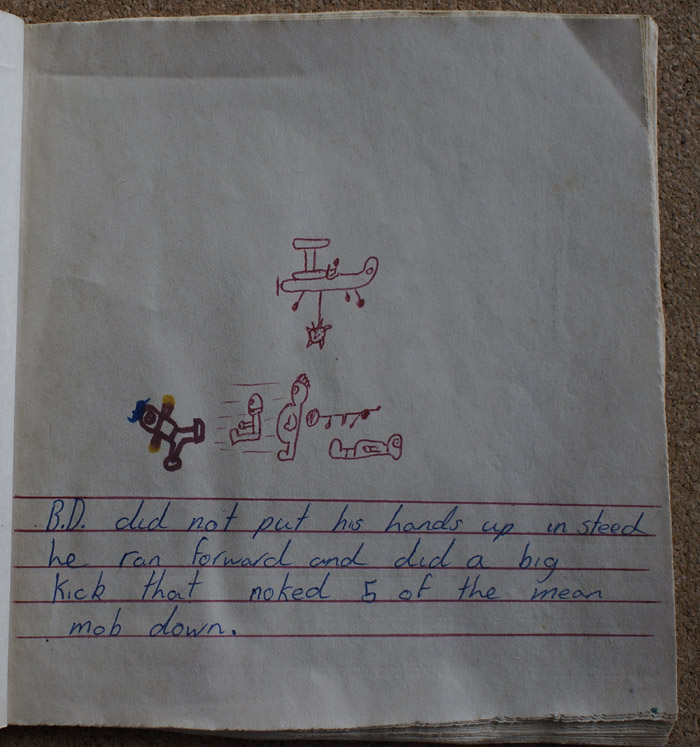 B.D. did not put his hands up in steed
he ran forward and did a big
kick that noked 5 of the mean
mob down.